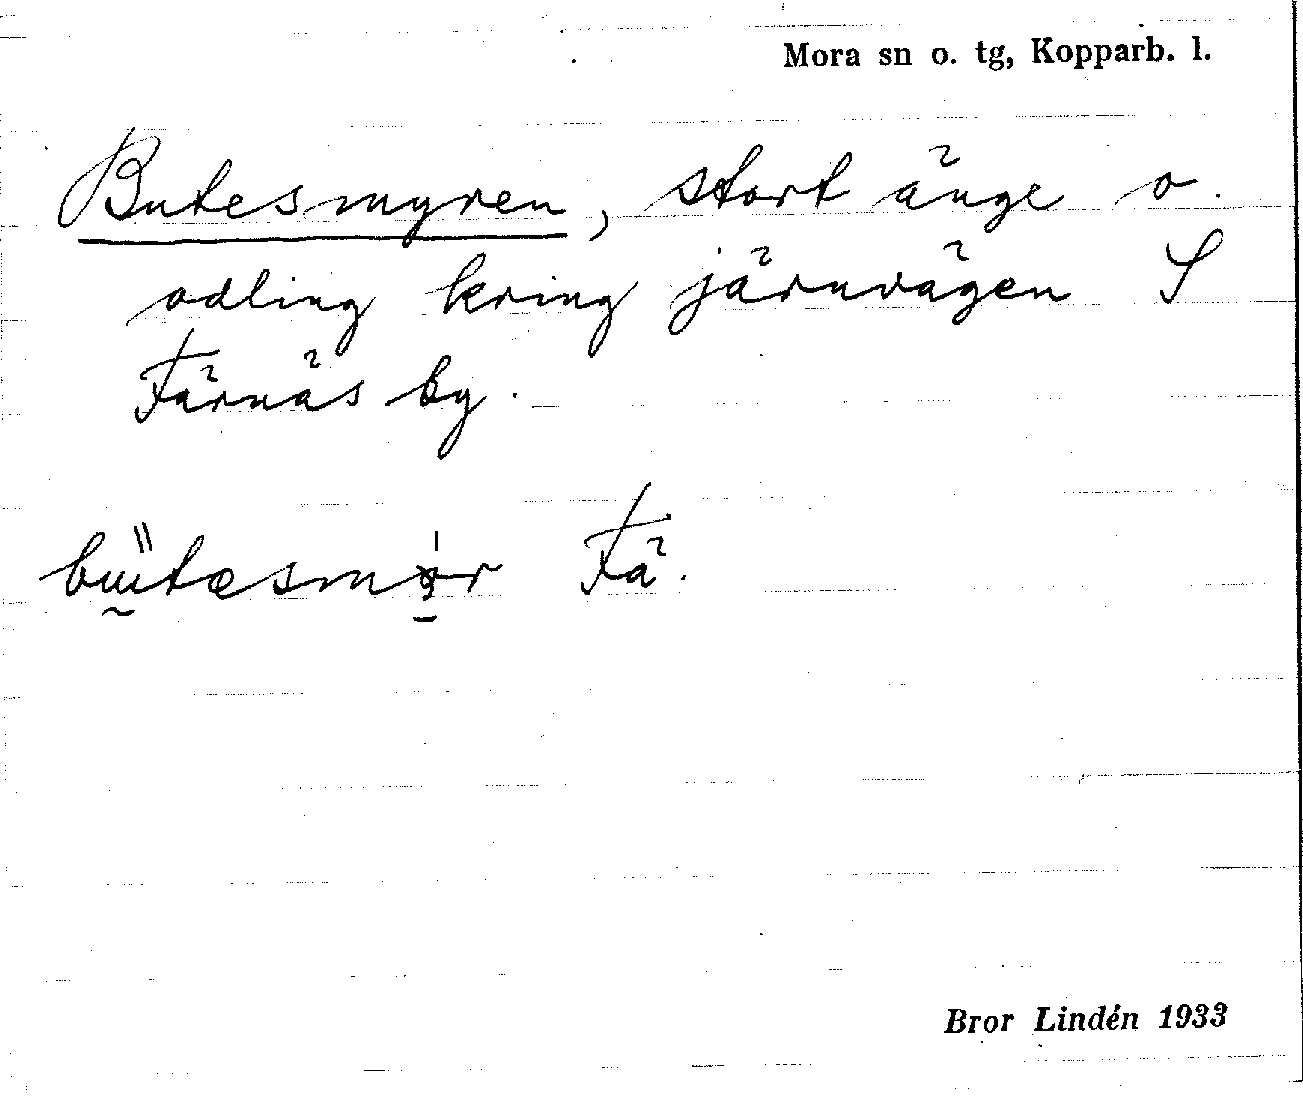 Mora sn o. tg, Kopparb. l.
Butesmyren, stort änge o.
odling kring järnvägen S
Färnäs by.
Fä.
Bror Lindén 1933